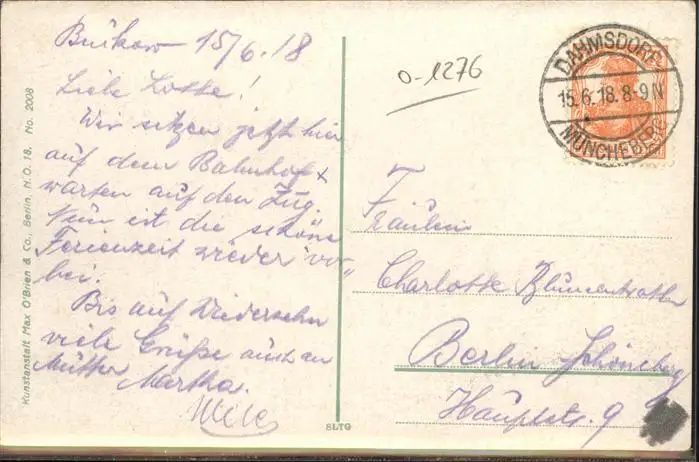 Buckow 15/6.18
Liebe Lotte!
Wir sitzen jetzt hier
auf dem Bahnhof &
warten auf den Zug.
Nun ist die schöne
Ferienzeit wieder vor-
bei.
Bis auf Wiedersehn
viele Grüße auch an
Mutter Martha.
0-1276
DAHMSDORF
15.6.18.8-9N
MÜNCHEBERG
Fräulein
Charlotte Blumenrath
Berlin Schöneberg
Hauptstr. 9
Kunstanstalt Max O'Brien & Co., Berlin, N.O. 18. No. 2008
SLTG